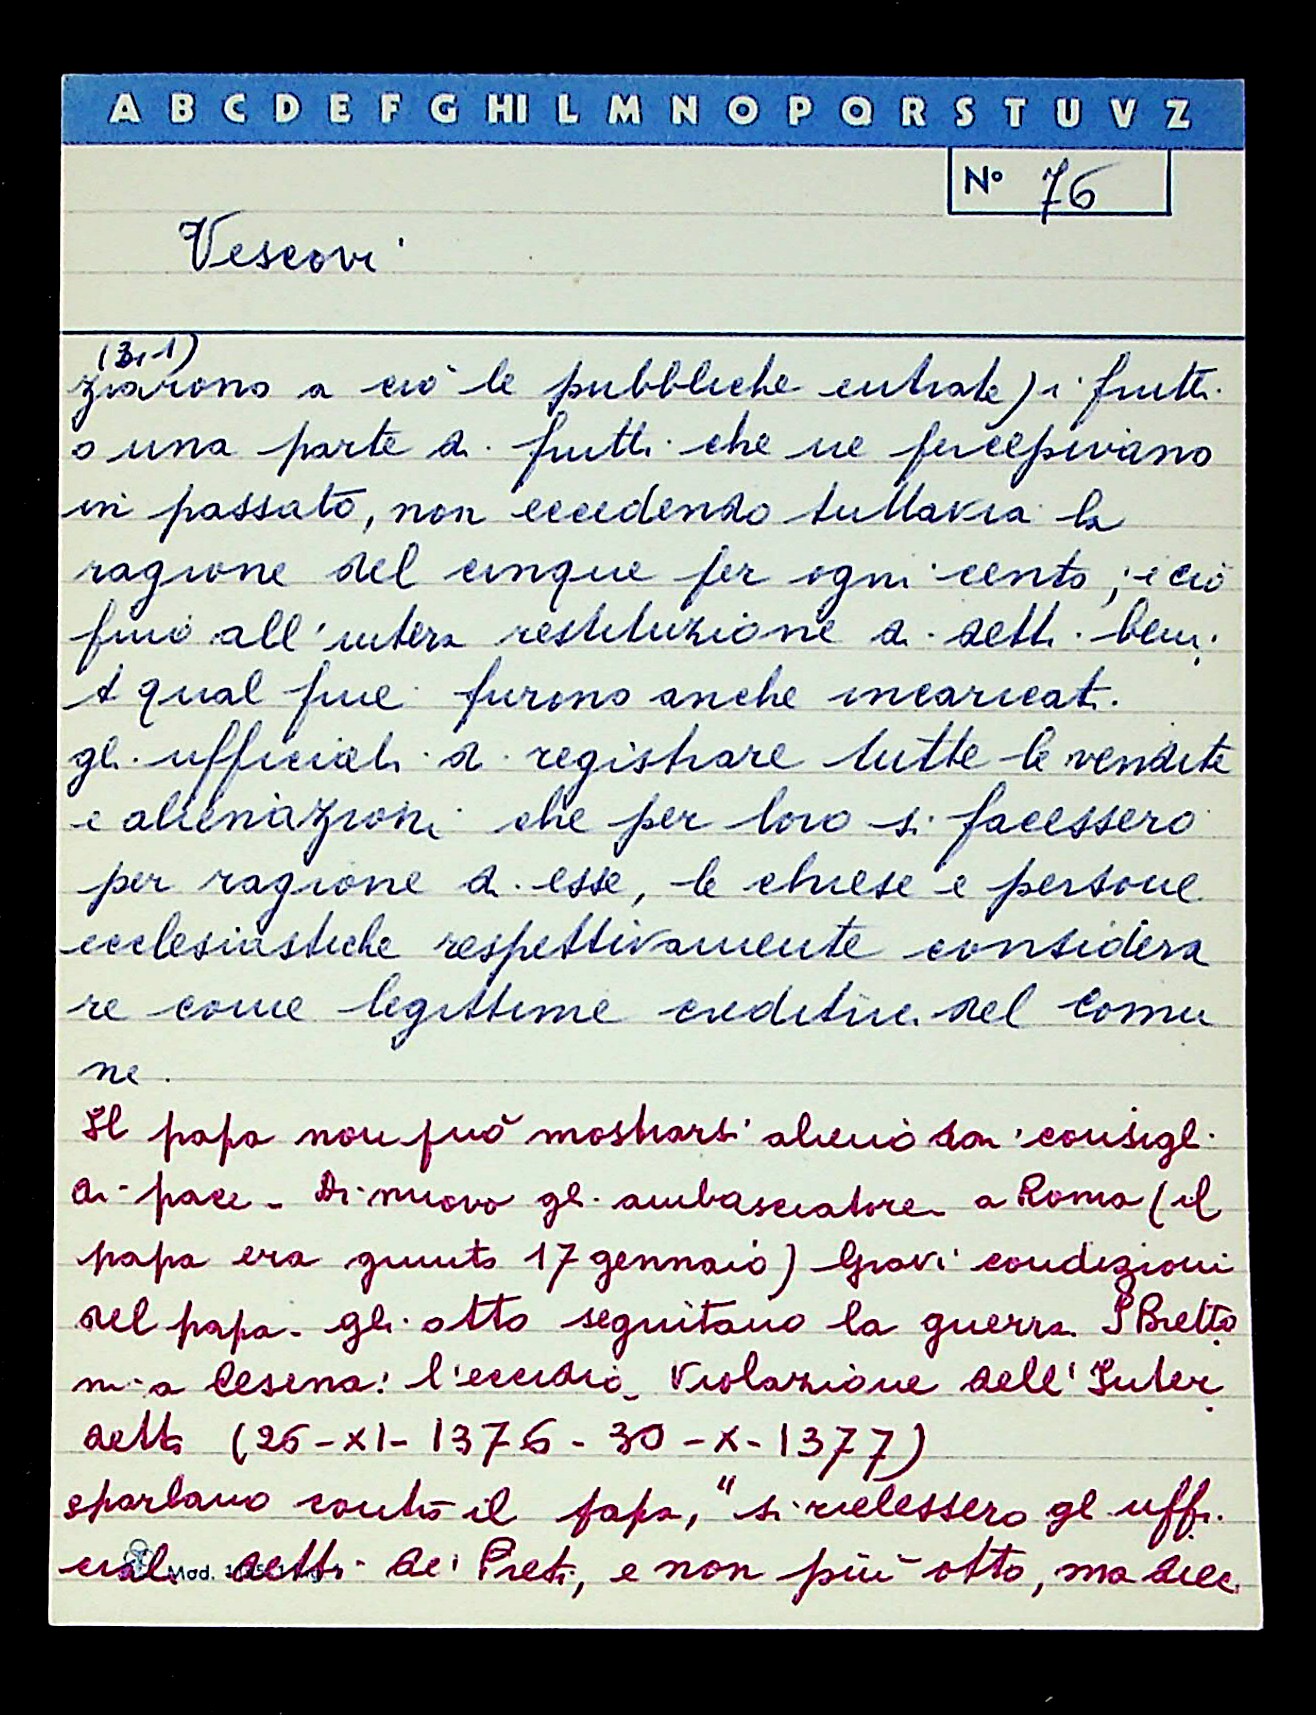 A B C D E F G HI L M N O P Q R S T U V Z
Nº 76
Vescovi
ziarono a ciò le pubbliche entrate) i frutti
o una parte di frutti che ne percepivano
in passato, non eccedendo tuttavia la
ragione del cinque per ogni cento; e ciò
fino all'intera restituzione di detti beni;
A qual fine furono anche incaricati
gli ufficiali di registrare tutte le vendite
e alienazioni che per loro si facessero
per ragione di esse, le chiese e persone
ecclesiastiche respettivamente considera
re come legittime creditrici del comu
ne.
Il papa non può mostrarsi alieno dai consigli
di pace - Di nuovo gli ambasciatori a Roma (il
papa era giunto 17 gennaio) Gravi condizioni
del papa - gli otto seguitano la guerra. I Bretto
ni a Cesena: l'eccidio - Violazione dell'Inter
detto (26-XI-1376 - 30-X-1377)
sparlano contro il papa, "si rielessero gli uffi
ciali detti dei Preti, e non più otto, ma dieci
Mod.